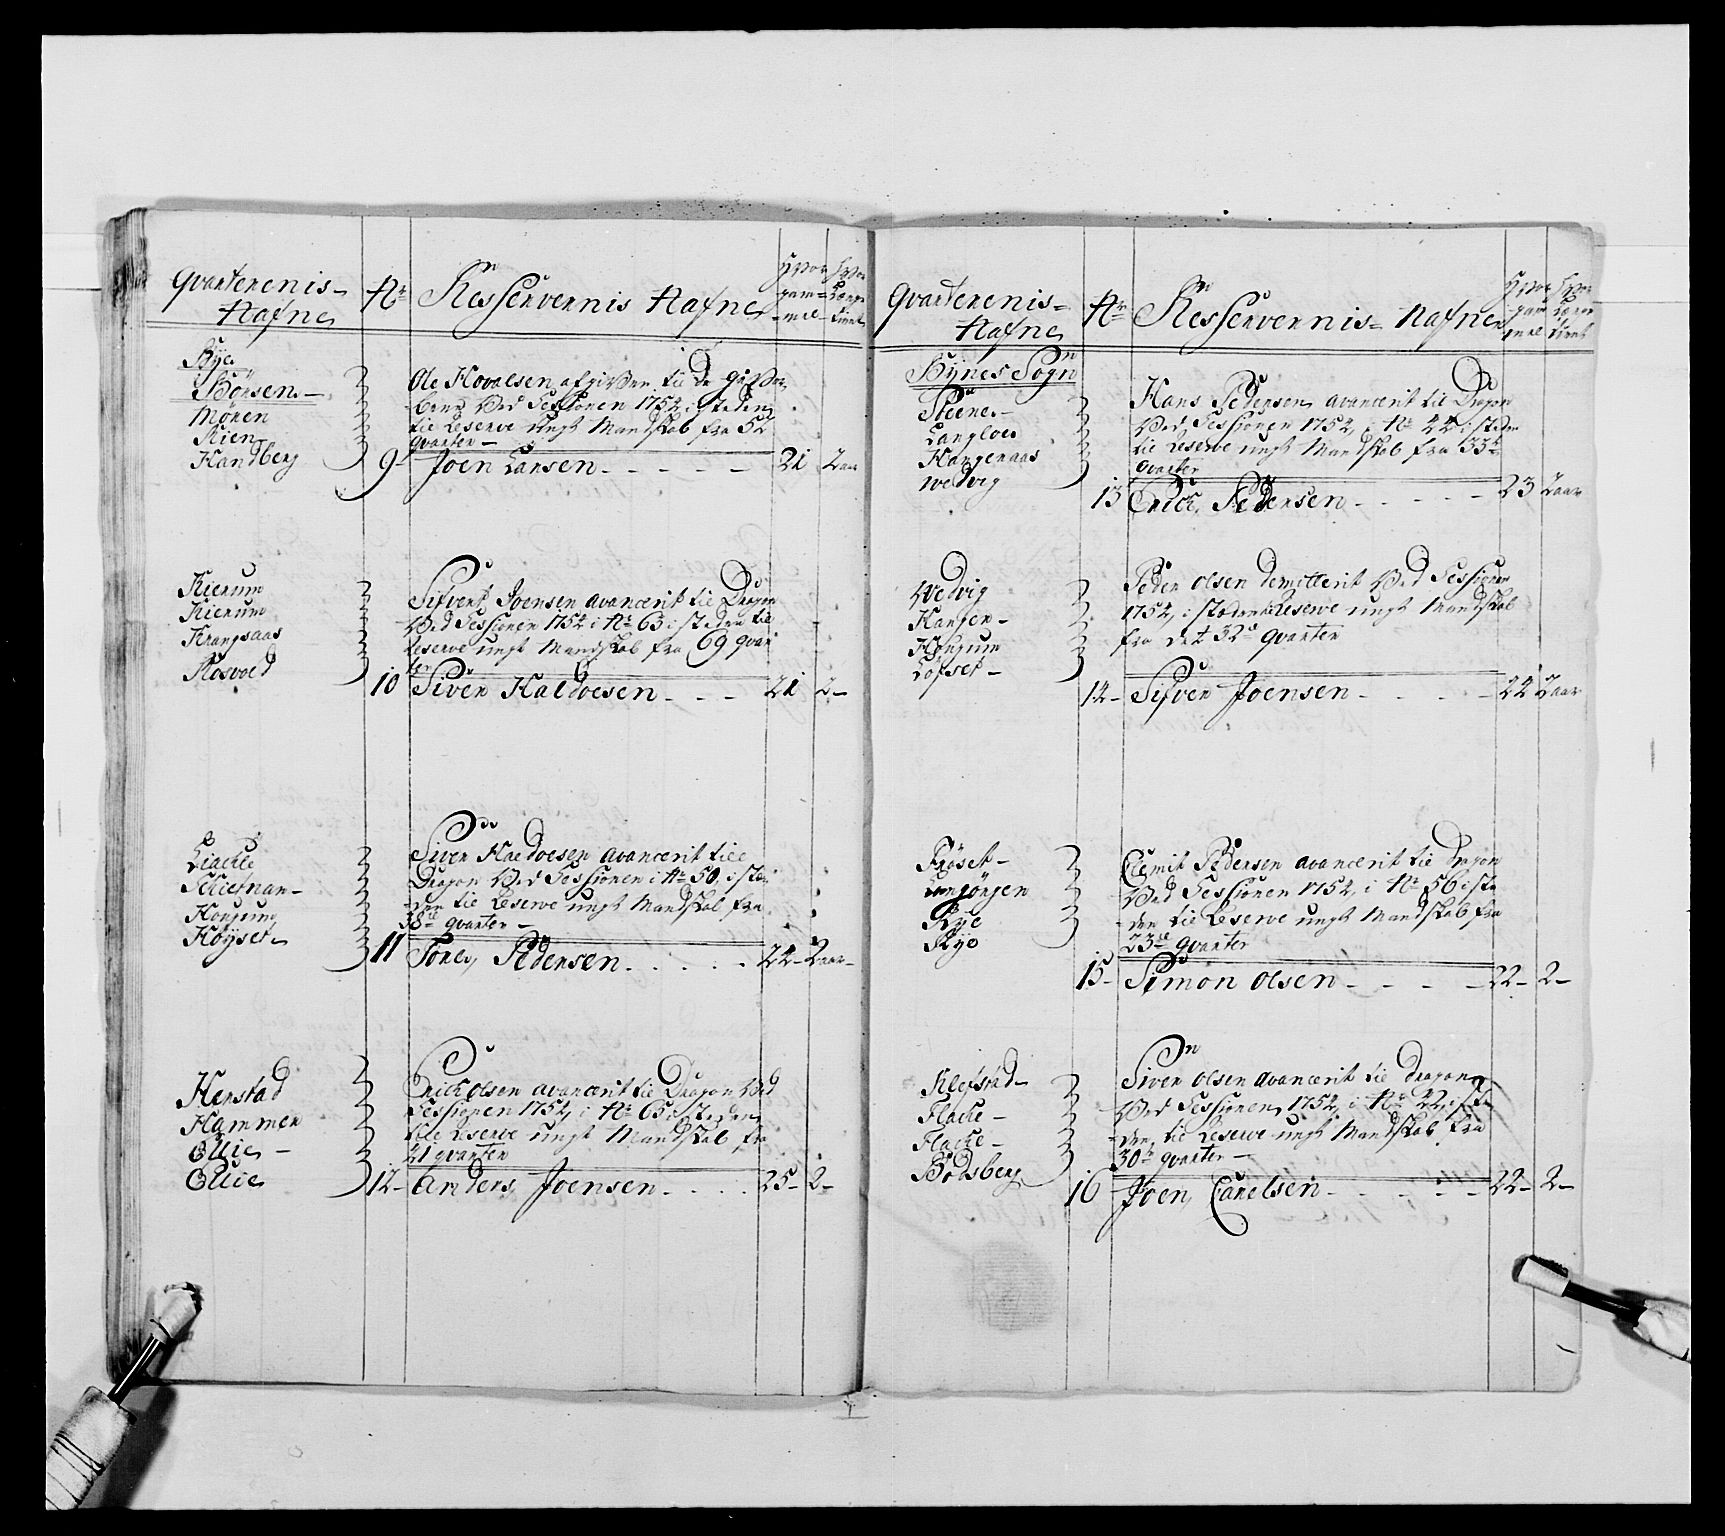 Qvarterernis-
Nafne
No
Resservernis Nafne
Hvor
gam-
mel
Hvor
Længe
tient
Bÿe
Børsen-
Mønen
Rien
Handberg
Ole Hovalsen afgiven til De
Ved Sessionen 1754, i steden
til Reserve ungt Mandskab fra 52
qvarter-
9- Joen Larsen - - - - - 21 2 aar
Kierum
Kierum
Krangsaas
Rosvold
Sifvert Joensen avancerit til Dragon
Ved Sessionen 1754 i No 63 i steden til
Reserve ungt Mandskab fra 69 qvar
ter
10 Siver Haldvesen - - - 21 2-
Schiefnan-
Hongum
Høÿset-
Siver Haldvesen avancerit till
Dragon Ved Sessionen i No 50, i stæ
den til Reserve ungt Mandskab fra
38te qvarter-
11 Tores Pedersen - - - - - 24- 2 aar-
Herstad
Hammer
Øllie-
Øllie
Erich Olsen avancerit til Dragon Ved
Sessionen 1754, i No 65 i steden
till Reserve ungt Mandskab fra
41 qvarter
12- Anders Joensen - - - - 25- 2-
Qvarterernis-
Nafne
No
Resservernis- Nafner
Hvor
gam
mel
Hvor
Længe
tient
Bÿnes Sogn
Steene-
Langloe
Hangeraas
Wedvig
Hans Pedersen avancerit til Dragon
Ved Sessionen 1754, i No 44 i steden
til Reserve ungt Mandskab fra 33te
qvarter
13 Erich Pedersen - - - - - 23 2 aar
Wedvig
Hangen-
Hongum
Løfset-
Peder Olsen demitterit Ved Sessionen
1754, i steden til Reserve ungt Mandskab
fra det 32te qvarter
14- Sifver Joensen - - - - - 24 2 aar
Frøset-
Langørgen
Rye
Rye
Clemit Pedersen avancerit til Dragon
Ved Sessionen 1754, i No 56 i ste
den til Reserve ungt Mandskab fra
23de qvarter
15- Simon Olsen - - - - - 22- 2-
Klefstad-
Flache-
Flache-
Bodsberg
Siver Olsen avancerit til Dragon
Ved Sessionen 1754, i No 22, i ste
den til Reserve ungt Mandskab fra
30te qvarter-
16 Joen Carelsen - - - - - 22- 2-